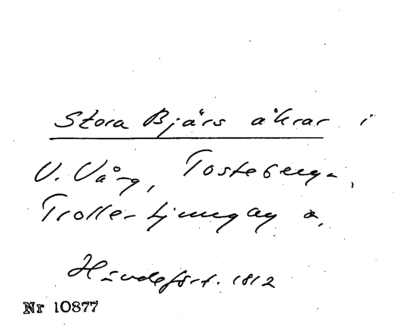 Stora Bjärs åkrar i
V. Vång, Tosteberga,
Trolle-Ljungby
Händefört. 1812
Nr 10877